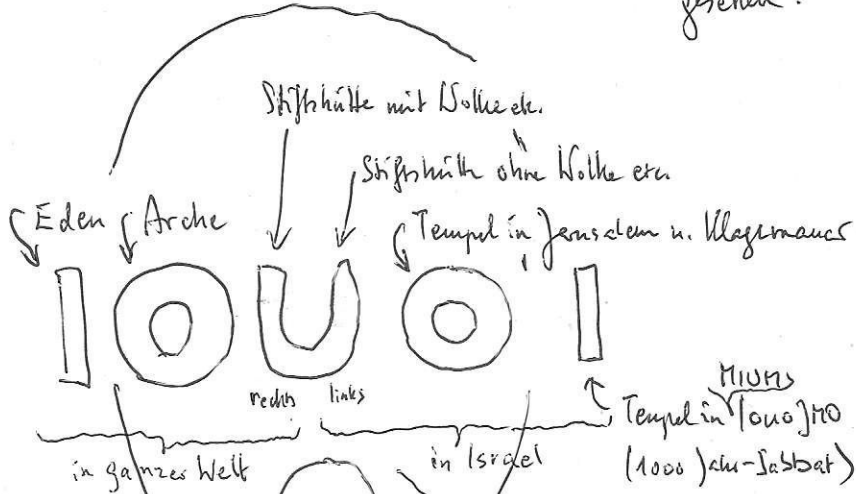 gesehen!
Stiftshütte mit Wolke etc.
Stiftshütte ohne Wolke etc.
Eden Arche Tempel in Jerusalem u. Klagemauer
I O U O I
rechts links
MIUMS
Tempel in [OUO]MO
in ganzer Welt in Israel (1000 Jahr-Sabbat)